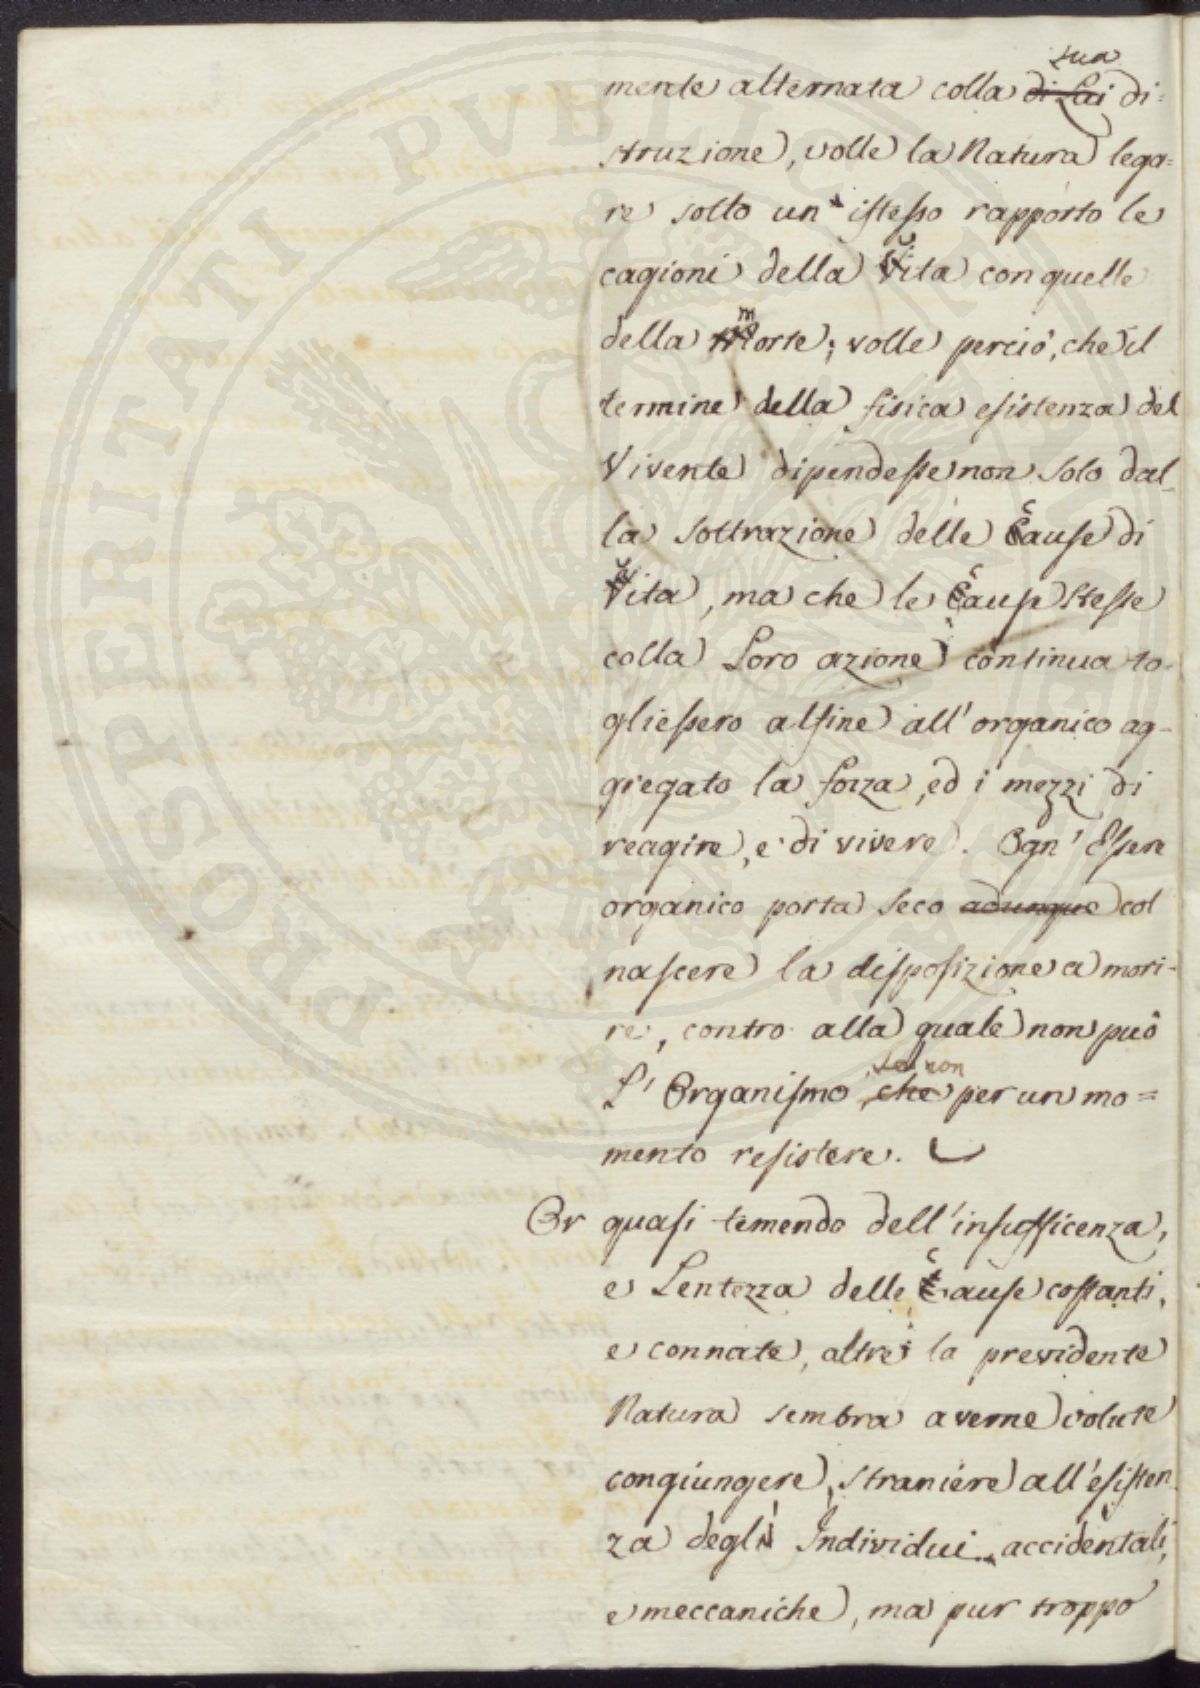 mente alternata colla di Lui sua di=
struzione, volle la Natura lega=
re sotto un istesso rapporto le
cagioni della vita con quelle
della morte; volle perciò, che il
termine della fisica esistenza del
Vivente dipendesse non solo dal_
la sottrazione delle cause di
vita, ma che le cause stesse
colla Loro azione continua to-
gliessero alfine all'organico ag-
gregato la forza, ed i mezzi di
reagire, e di vivere. Ogn' Essere
organico porta seco adunque col
nascere la disposizione a mori-
re, contro alla quale non può
L' Organismo che se non per un mo=
mento resistere.
Or quasi temendo dell'insufficenza,
e Lentezza delle cause costanti,
e connate, altre la previdente
Natura sembra averne volute
congiungere, straniere all'esisten
za degl' Individui accidentali,
e meccaniche, ma pur troppo
PROSPERITATI PVBLICAE